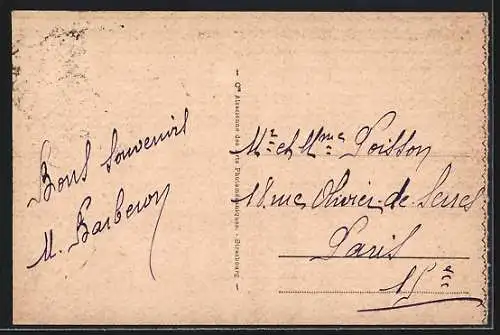 Bons souvenirs
M. Barberon
Cie Alsacienne des Arts Photomécaniques, - Strasbourg
Mr et Mme Poisson
18 rue Olivier-de-Serres
Paris
15e